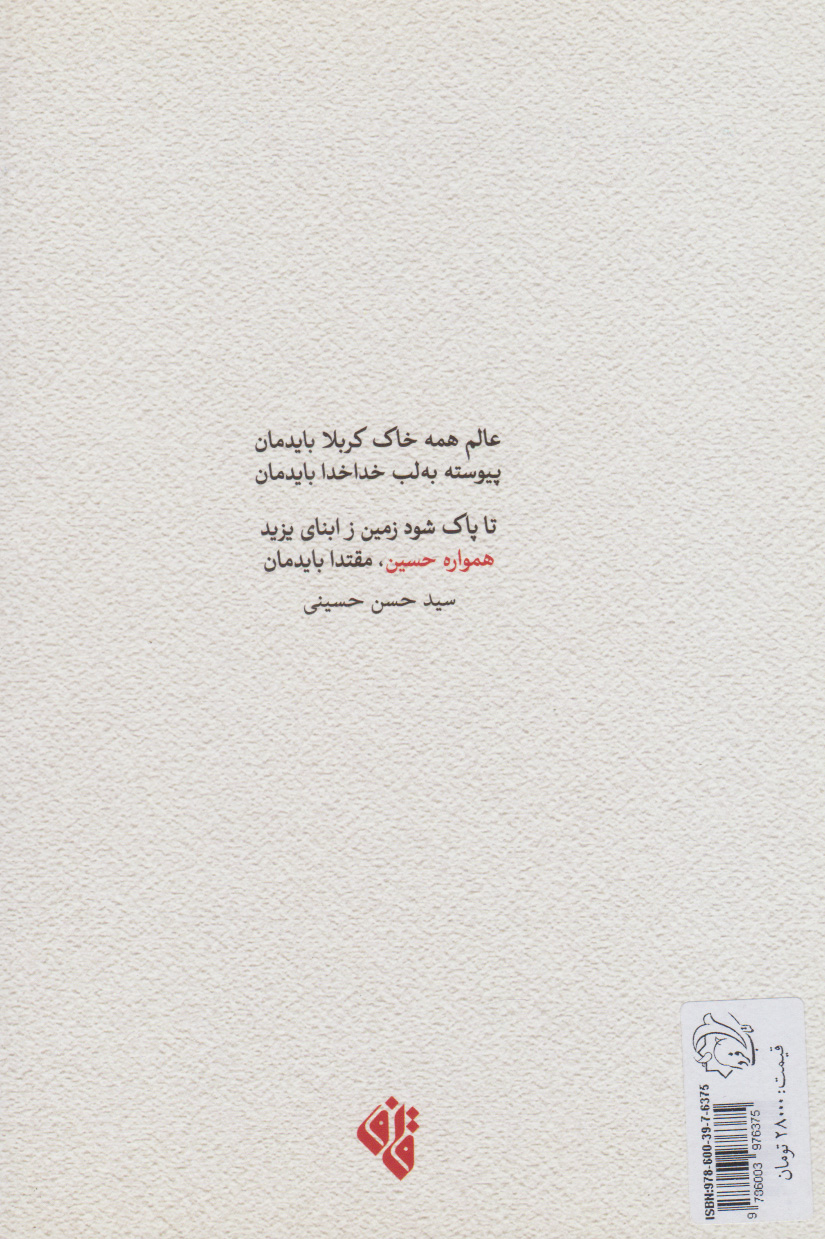 عالم همه خاک کربلا بایدمان
پیوسته به‌لب خداخدا بایدمان
تا پاک شود زمین ز ابنای یزید
همواره حسین، مقتدا بایدمان
سید حسن حسینی
قیمت: ۲۸۰۰۰ تومان
ISBN:978-600-39-7-6375
9 786003 976375